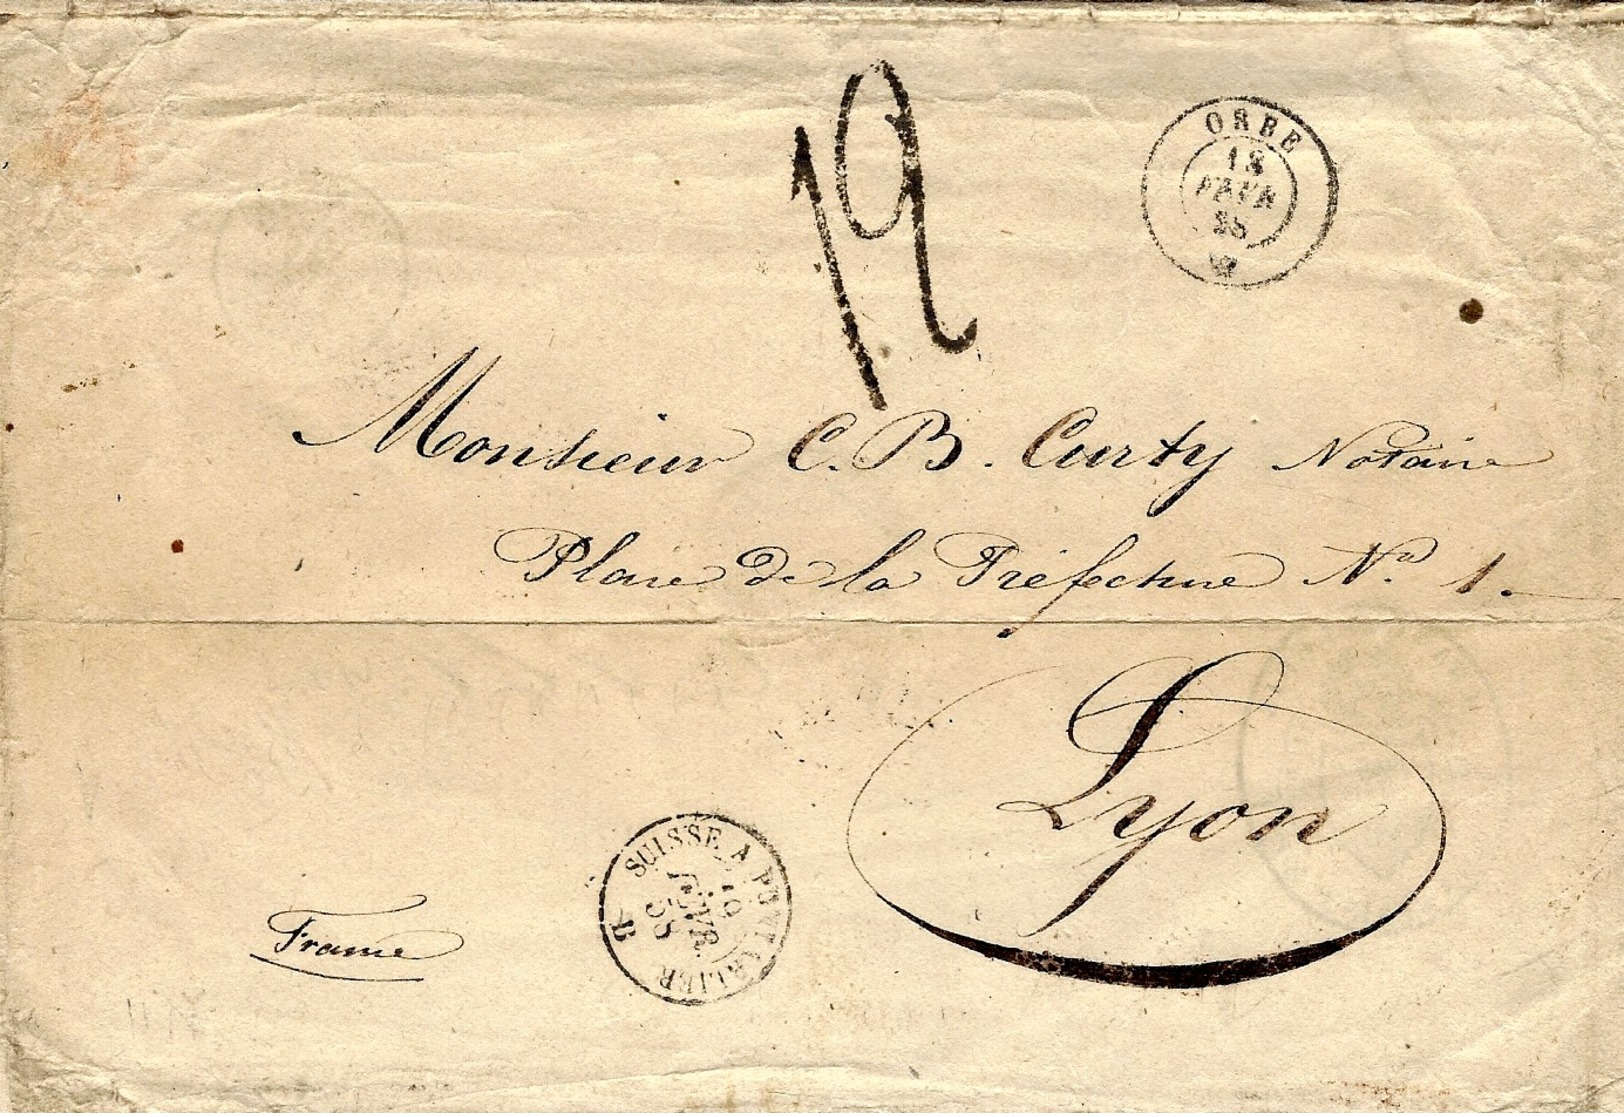 12
ORBE
18
FEVR
58
Monsieur C. B. Curty Notaire
Place de la Préfecture No. 1.
Lyon
France
SUISSE A PONTARLIER
19
FEVR.
58